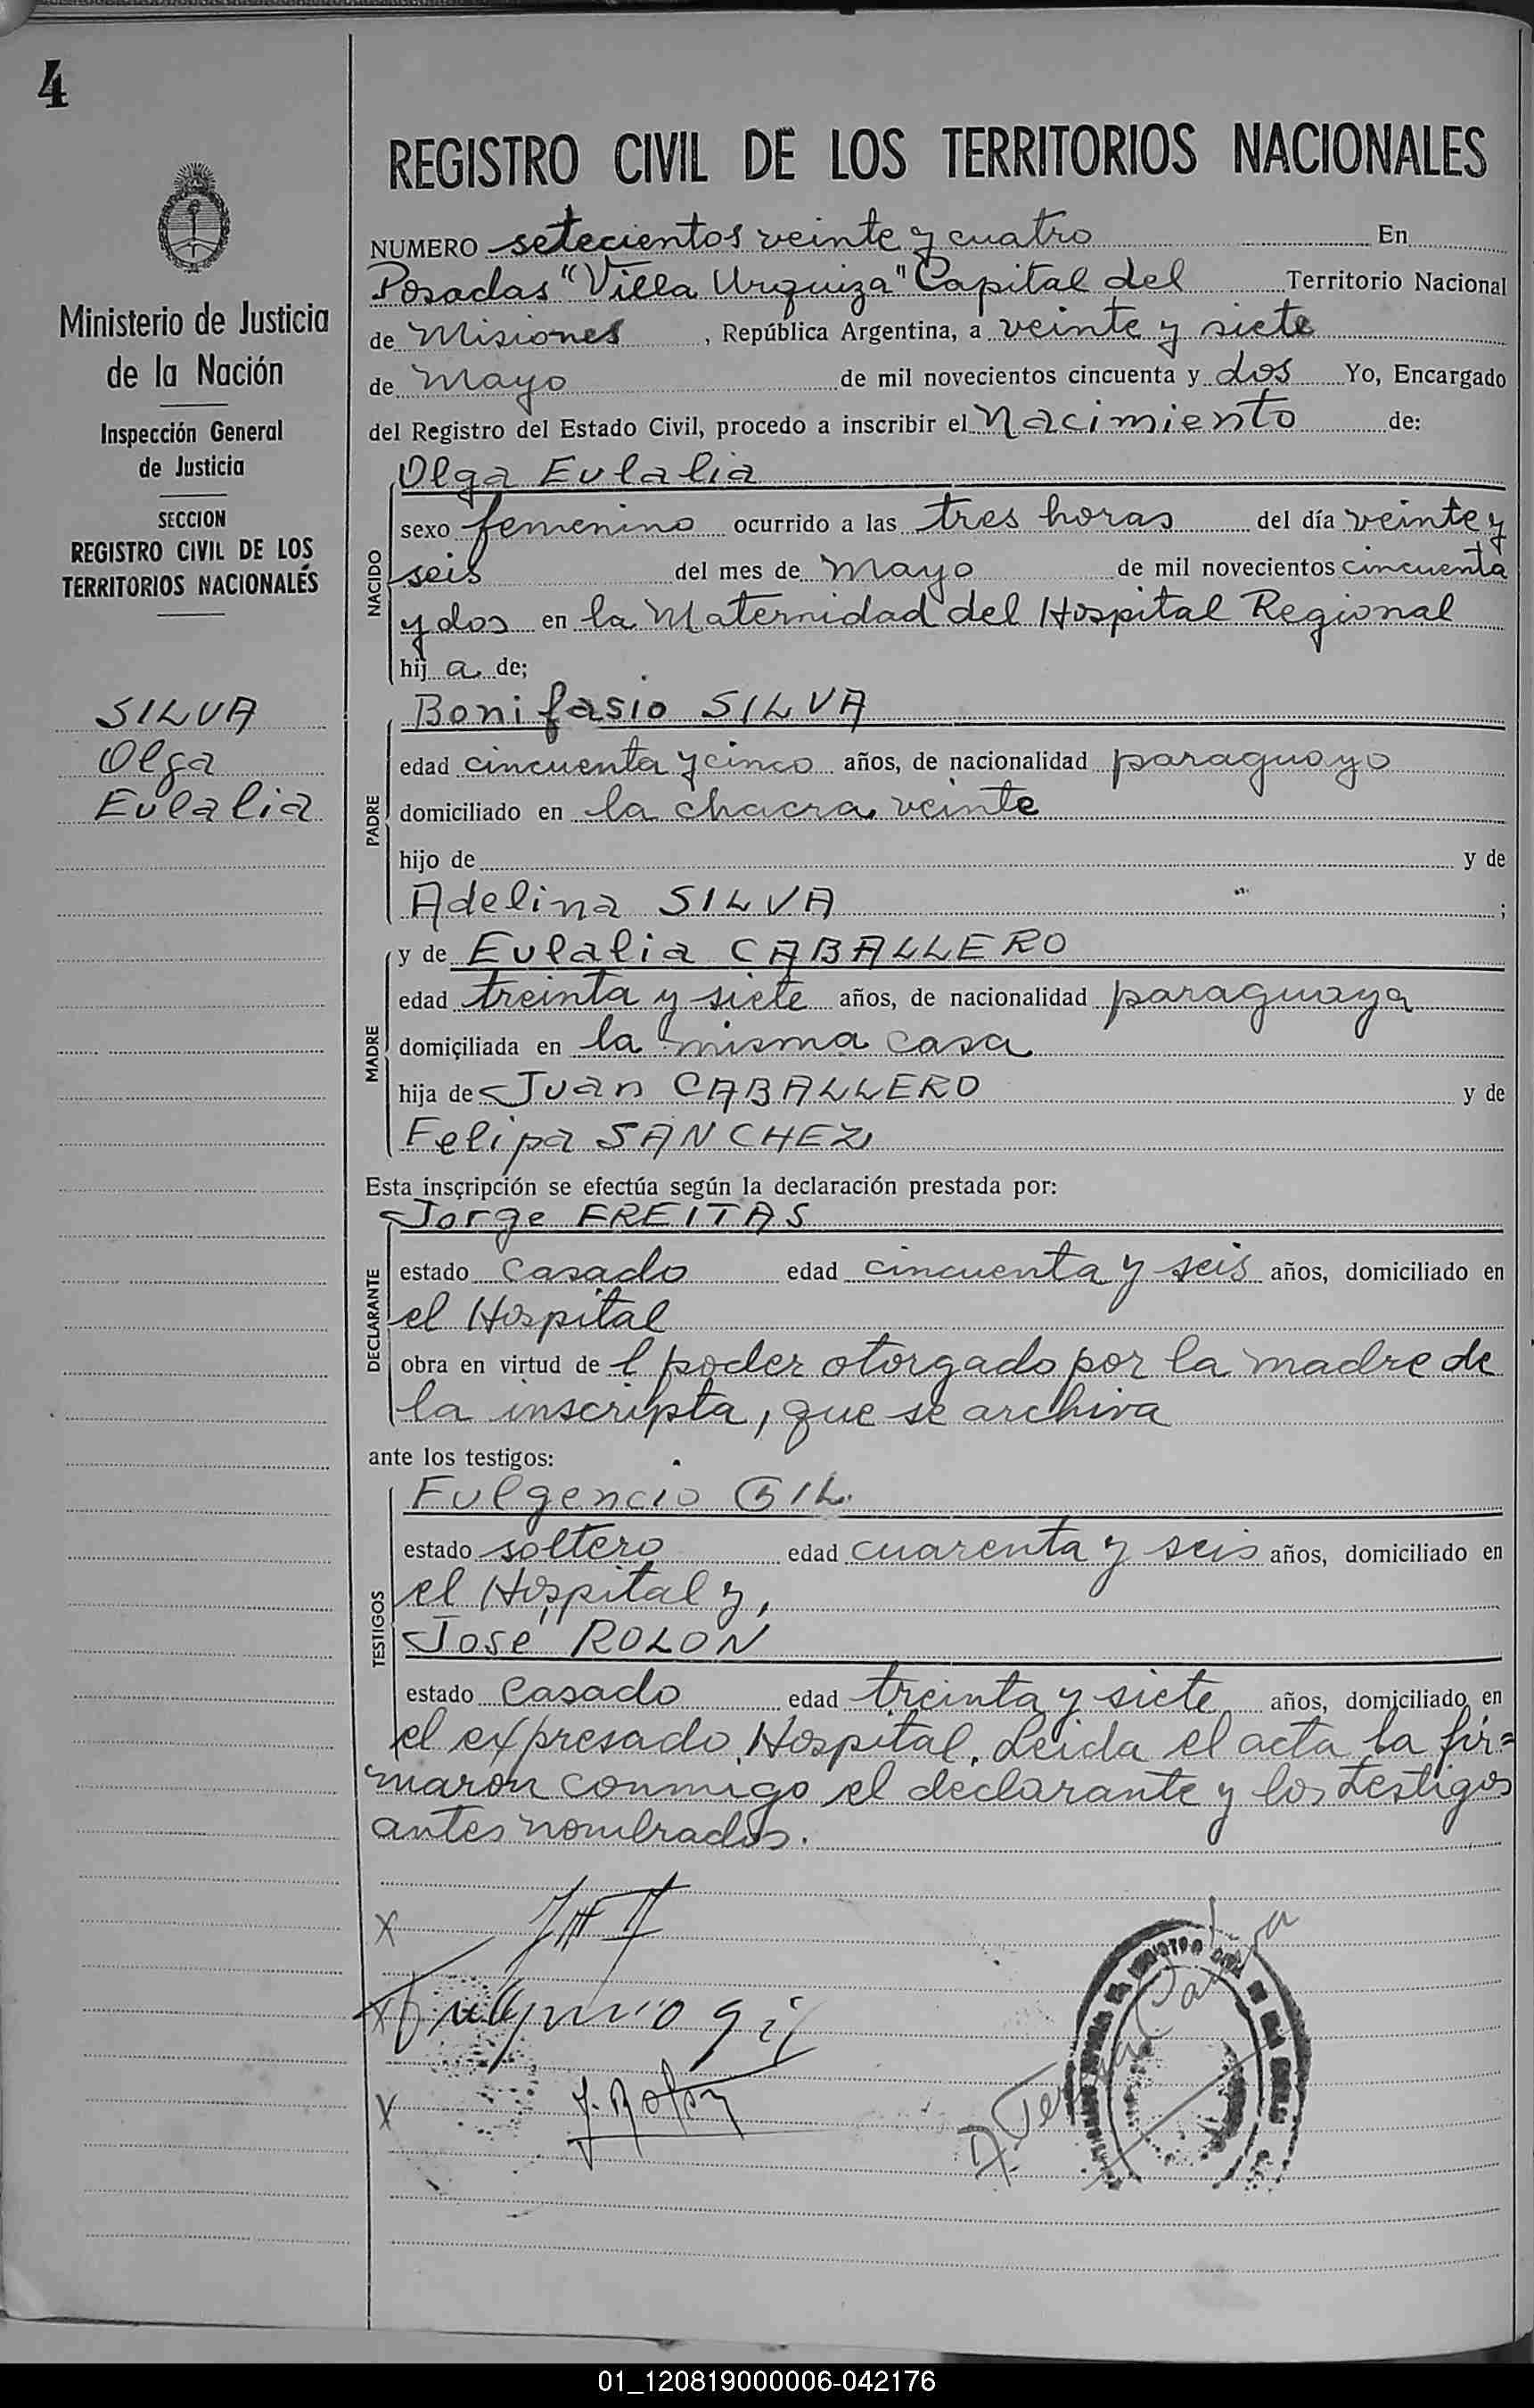 4
Ministerio de Justicia
de la Nación
Inspección General
de Justicia
SECCION
REGISTRO CIVIL DE LOS
TERRITORIOS NACIONALES
SILVA
Olga
Eulalia
REGISTRO CIVIL DE LOS TERRITORIOS NACIONALES
NUMERO setecientos veinte y cuatro En
Posadas "Villa Urquiza" Capital del Territorio Nacional
de Misiones, República Argentina, a veinte y siete
de Mayo de mil novecientos cincuenta y dos Yo, Encargado
del Registro del Estado Civil, procedo a inscribir el Nacimiento de:
Olga Eulalia
NACIDO
sexo femenino ocurrido a las tres horas del día veinte y
seis del mes de Mayo de mil novecientos cincuenta
y dos en la Maternidad del Hospital Regional
hij a de;
Bonifasio SILVA
PADRE
edad cincuenta y cinco años, de nacionalidad paraguayo
domiciliado en la chacra veinte
hijo de y de
Adelina SILVA ;
y de Eulalia CABALLERO
MADRE
edad treinta y siete años, de nacionalidad paraguaya
domiciliada en la misma casa
hija de Juan CABALLERO y de
Felipa SANCHEZ
Esta inscripción se efectúa según la declaración prestada por:
Jorge FREITAS
DECLARANTE
estado casado edad cincuenta y seis años, domiciliado en
el Hospital
obra en virtud de l poder otorgado por la madre de
la inscripta, que se archiva
ante los testigos:
Fulgencio GIL
TESTIGOS
estado soltero edad cuarenta y seis años, domiciliado en
el Hospital y,
José ROLON
estado casado edad treinta y siete años, domiciliado en
el expresado Hospital. Leida el acta la fir=
maron conmigo el declarante y los testigos
antes nombrados.
x
x Fulgencio gil
x J. Rolon
01_120819000006-042176